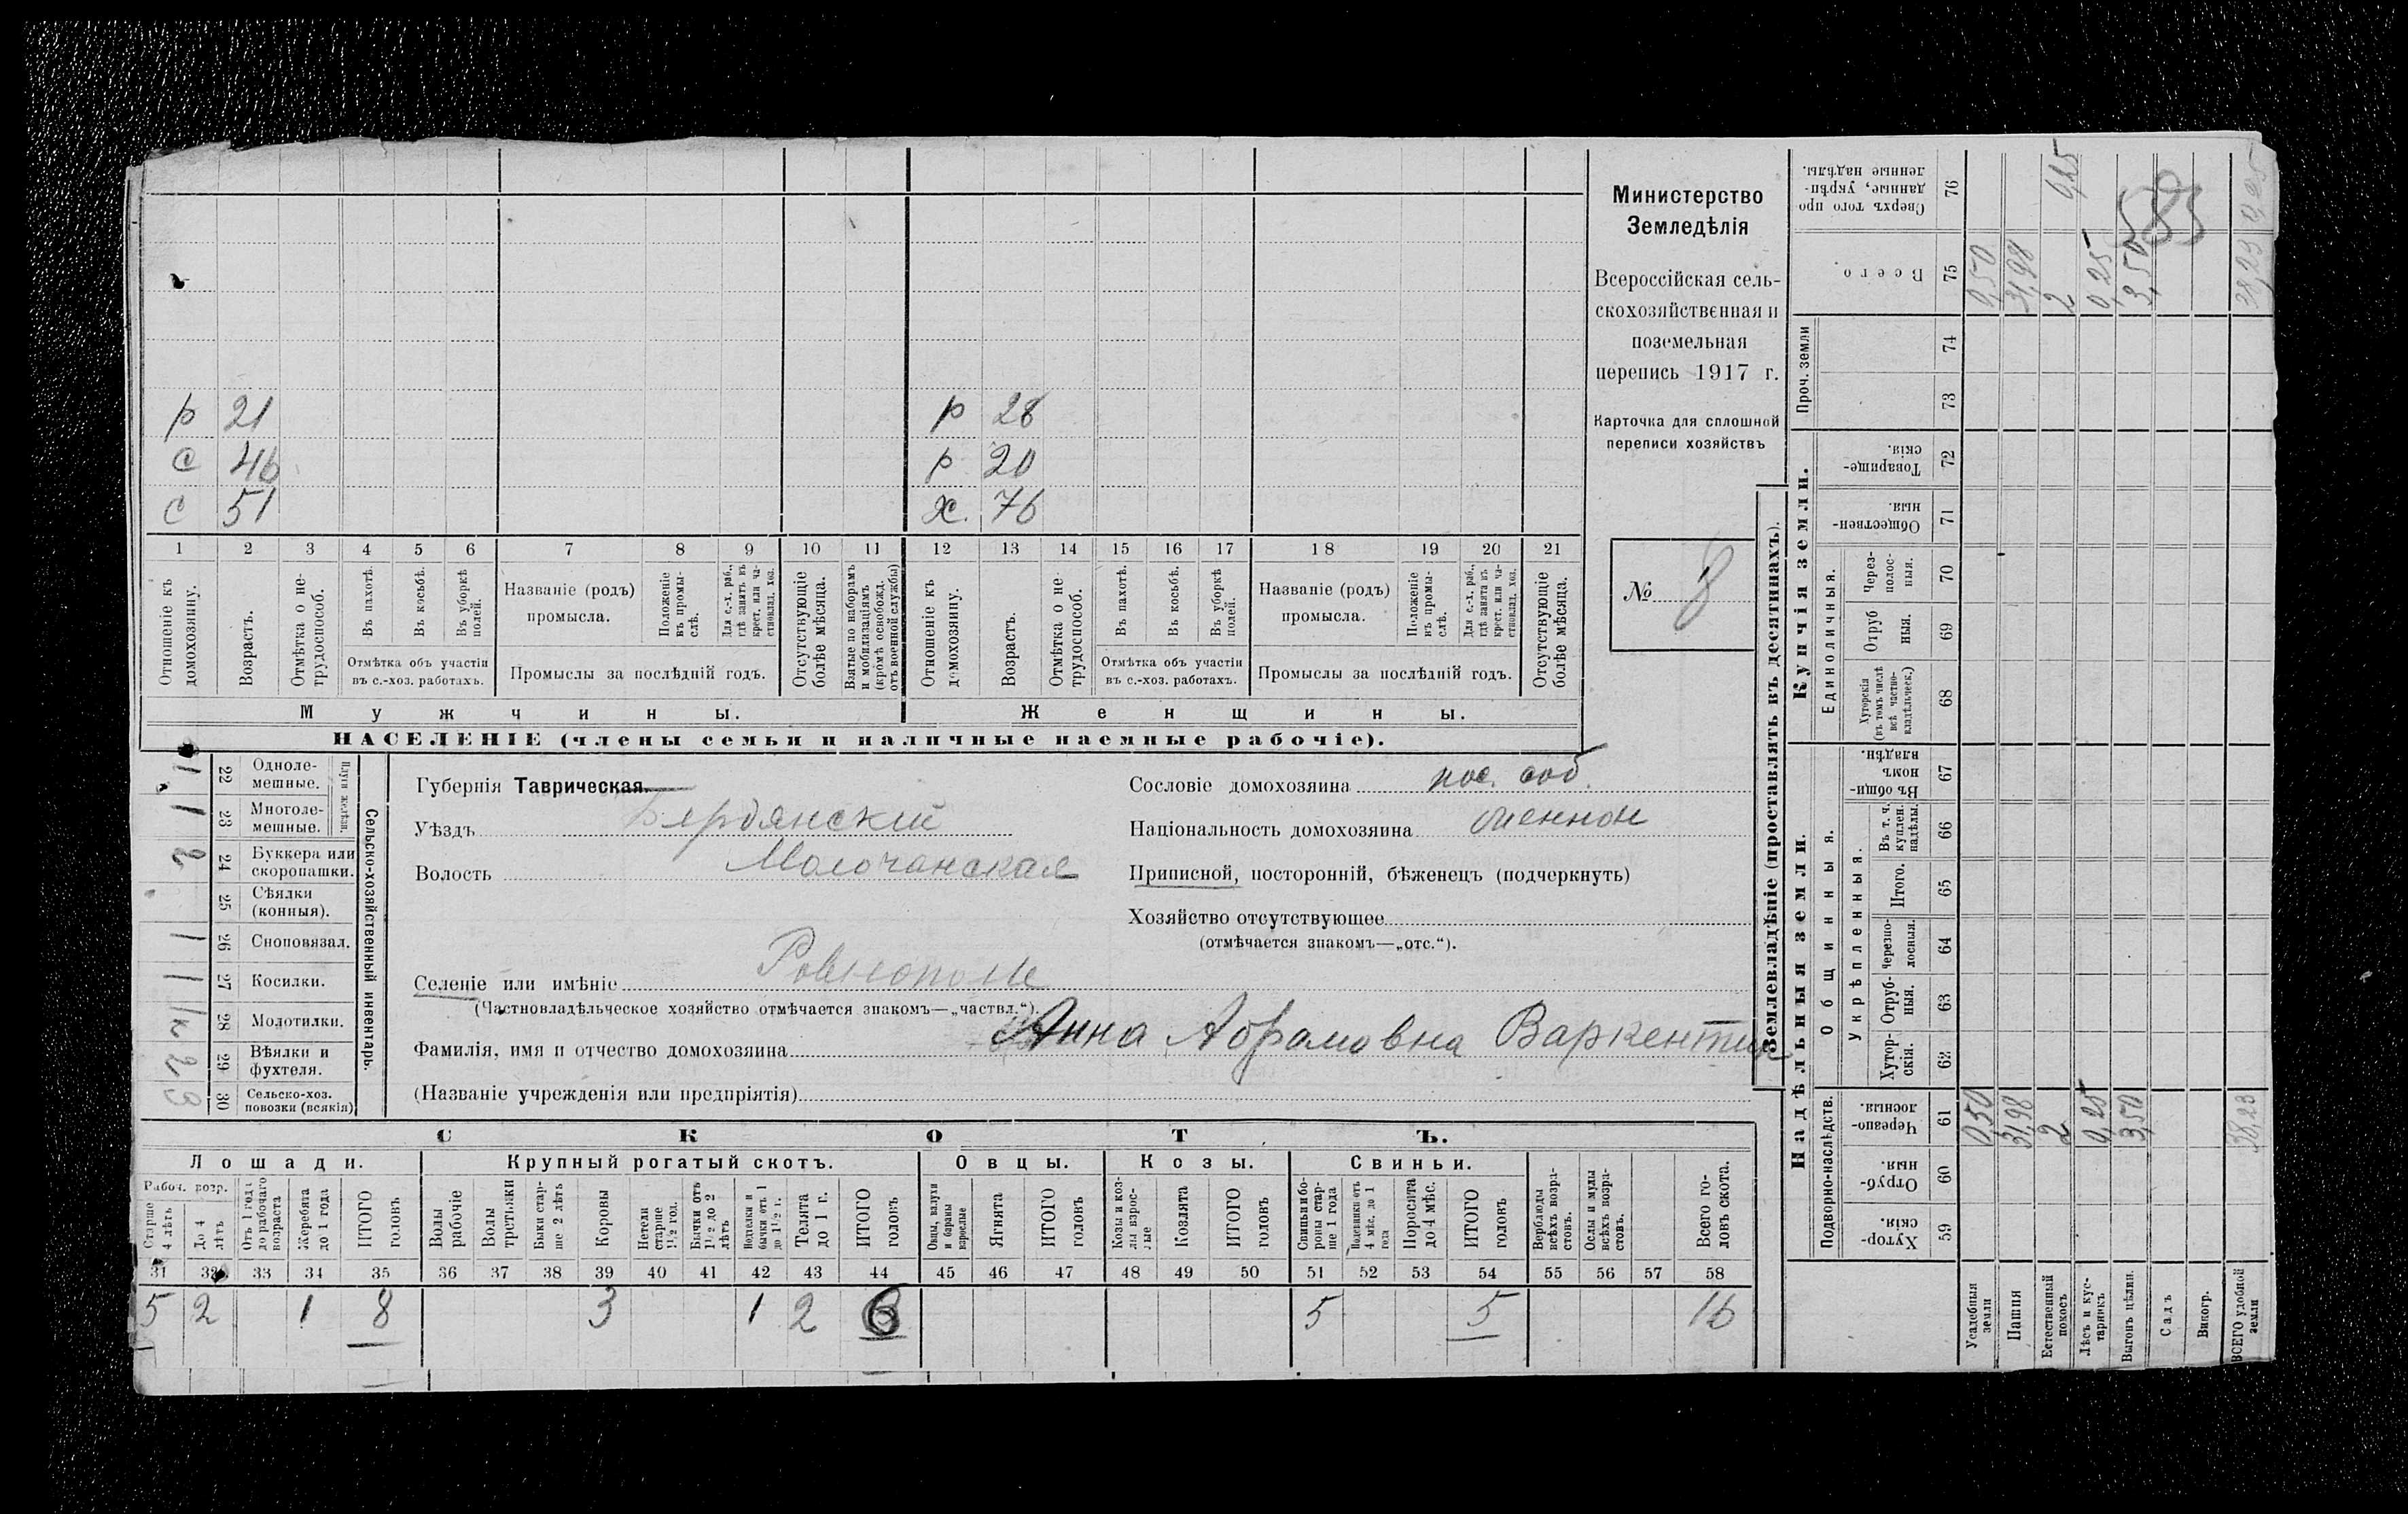 р 21 р 28
с 46 р 20
с 51 х. 76
1 2 3 4 5 6 7 8 9 10 11 12 13 14 15 16 17 18 19 20 21
Отношеніе къ домохозяину.
Возрастъ.
Отмѣтка о не-трудоспособ.
Въ пахотѣ.
Въ косьбѣ.
Въ уборкѣ полей.
Отмѣтка объ участіи
въ с.-хоз. работахъ.
Названіе (родъ)
промысла.
Положеніе въ промы-слѣ.
Для с.-х. раб., гдѣ занятъ въ крест. или ча-стновлад. хоз.
Промыслы за послѣдній годъ.
Отсутствующіе болѣе мѣсяца.
Взятые по наборамъ и мобилизаціямъ (кромѣ освобожд. отъ военной службы)
Отношеніе къ домохозяину.
Возрастъ.
Отмѣтка о не-трудоспособ.
Въ пахотѣ.
Въ косьбѣ.
Въ уборкѣ полей.
Отмѣтка объ участіи
въ с.-хоз. работахъ.
Названіе (родъ)
промысла.
Положеніе въ промы-слѣ.
Для с.-х. раб., гдѣ занята въ крест. или ча-стновлад. хоз.
Промыслы за послѣдній годъ.
Отсутствующіе болѣе мѣсяца.
Мужчины. Женщины.
НАСЕЛЕНІЕ (члены семьи и наличные наемные рабочіе).
Министерство
Земледѣлія
Всероссійская сель-
скохозяйственная и
поземельная
перепись 1917 г.
Карточка для сплошной
переписи хозяйствъ
№ 8
Сельско-хозяйственный инвентарь.
Плуги желѣзн.
1 22 Одноле-мешные.
1 23 Многоле-мешные.
2 24 Буккера или скоропашки.
25 Сѣялки (конныя).
1 26 Сноповязал.
1 27 Косилки.
1к 28 Молотилки.
2 29 Вѣялки и фухтеля.
3 30 Сельско-хоз. повозки (всякія)
Губернія Таврическая.
Уѣздъ Бердянскій
Волость Молочанская
Селеніе или имѣніе Ровнополе
(Частновладѣльческое хозяйство отмѣчается знакомъ—„частвл.“).
Фамилія, имя и отчество домохозяина Анна Абрамовна Варкентин
(Названіе учрежденія или предпріятія)
Сословіе домохозяина пос. соб.
Національность домохозяина меннон
Приписной, посторонній, бѣженецъ (подчеркнуть)
Хозяйство отсутствующее
(отмѣчается знакомъ—„отс.“).
СКОТЪ.
Лошади. Крупный рогатый скотъ. Овцы. Козы. Свиньи.
Рабоч. возр.
Старше 4 лѣтъ
До 4 лѣтъ
Отъ 1 года до рабочаго возраста
Жеребята до 1 года
ИТОГО головъ
Волы рабочіе
Волы
Быки стар-ше 2 лѣтъ
Коровы
Нетели старше 1½ год.
Бычки отъ 1½ до 2 лѣтъ
бычки отъ 1 до 1½ г.
Телята до 1 г.
ИТОГО головъ
Овцы, валухи и бараны взрослые
Ягнята
ИТОГО головъ
Козы и коз-лы взрос-лые
Козлята
ИТОГО головъ
Свиньи и бо-ровы стар-ше 1 года
Подсвинки отъ 4 мѣс. до 1 года
Поросята до 4 мѣс.
ИТОГО головъ
Верблюды всѣхъ возра-стовъ.
Ослы и мулы всѣхъ возра-стовъ.
Всего го-ловъ скота.
31 32 33 34 35 36 37 38 39 40 41 42 43 44 45 46 47 48 49 50 51 52 53 54 55 56 57 58
5 2 1 8 3 1 2 6 5 5 16
Землевладѣніе (проставлять въ десятинахъ).
Надѣльныя земли. Купчія земли.
Подворно-наслѣдств.
Общинныя.
Укрѣпленныя.
Единоличныя.
Проч. земли
Хутор-скія. 59
Отруб-ныя. 60
Черезпо-лосныя. 61
Хутор-скія. 62
Отруб-ныя. 63
Черезпо-лосныя. 64
Итого. 65
Въ т. ч. куплен. надѣлы. 66
Въ общи-номъ владѣн. 67
Хуторскія (въ томъ числѣ всѣ частно-владѣльческ.) 68
Отрубныя. 69
Через-полос-ныя. 70
Обществен-ныя. 71
Товарище-скія. 72
73
74
Всего. 75
Сверхъ того про-данные, укрѣп-ленные надѣлы. 76
Усадебныя земли 0,50 0,50
Пашня 31,98 31,98
Естественный покосъ 2 2 9,25
Лѣсъ и кус-тарникъ 0,25 0,25
Выгонъ цѣлин. 3,50 3,50
Садъ
Виногр.
ВСЕГО удобной земли 38,23 38,23 9,25
583